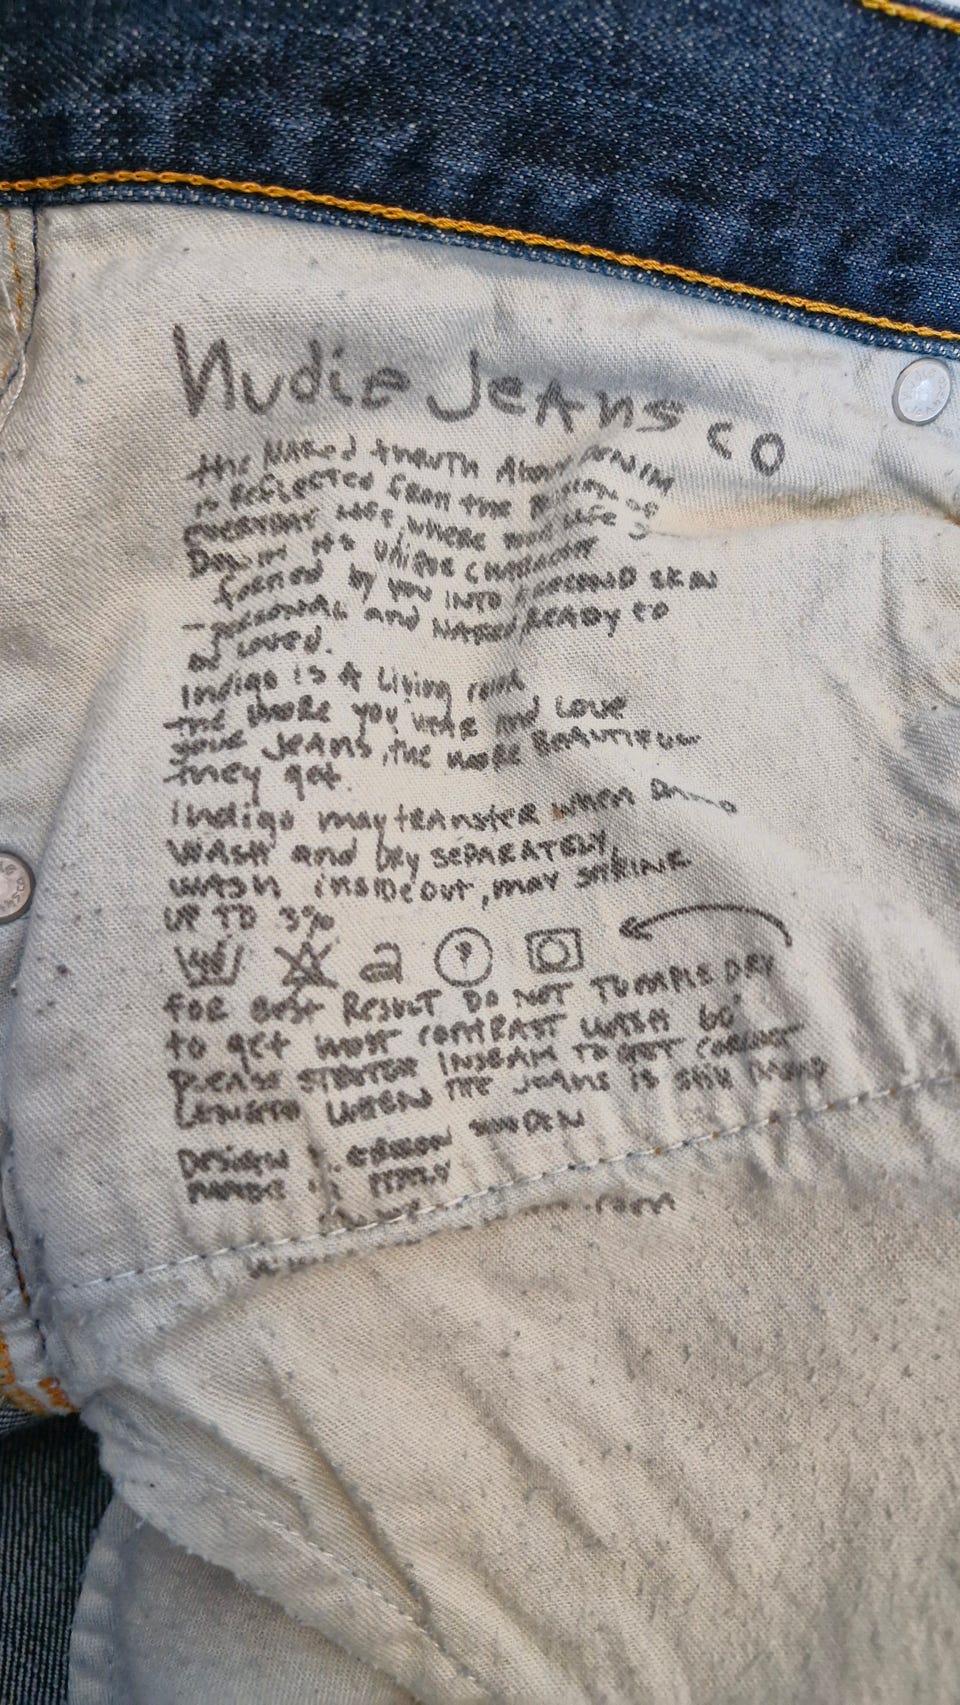 Nudie Jeans co
the NAKed truth About DENIM
is REFLECTED from the passion of
EVERYDAY Life, where your life is
Down its unique CHARACTER
formed by you INTO A SECOND SKIN
- personAL and NAKED, READY to
be loved.
Indigo is A Living
the more you WEAR and Love
your JEANS, the more BEAUTIFUL
they get.
Indigo may trANsfer when DAmp
WASH and Dry SEPARATELY,
WASH insideout, may SHRINK
UP TO 3%
a
FOR Best Result DO NOT TUMBLE DRY
to get most contRAST WASH 60°
PLEASE STRETCH INSEAM TO GET CORRECT
LENGTH WHEN THE JEANS IS still DAMP
DESIGN SWEDEN
MADE IN ITALY
.com